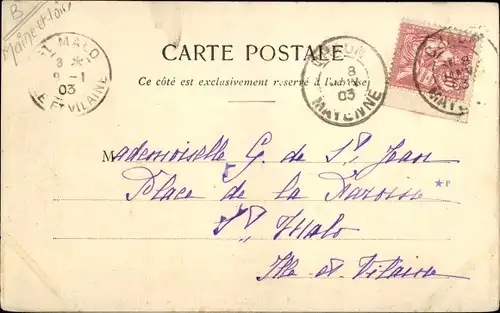 B
Maine et Loire
ST MALO
8 *
9 -1
03
LE ET VILAINE
CARTE POSTALE
Ce côté est exclusivement réservé à l'adresse
8
03
MAYENNE
Mademoiselle G. de St Jean
Place de la Paroisse
St Malo
Ille et Vilaine